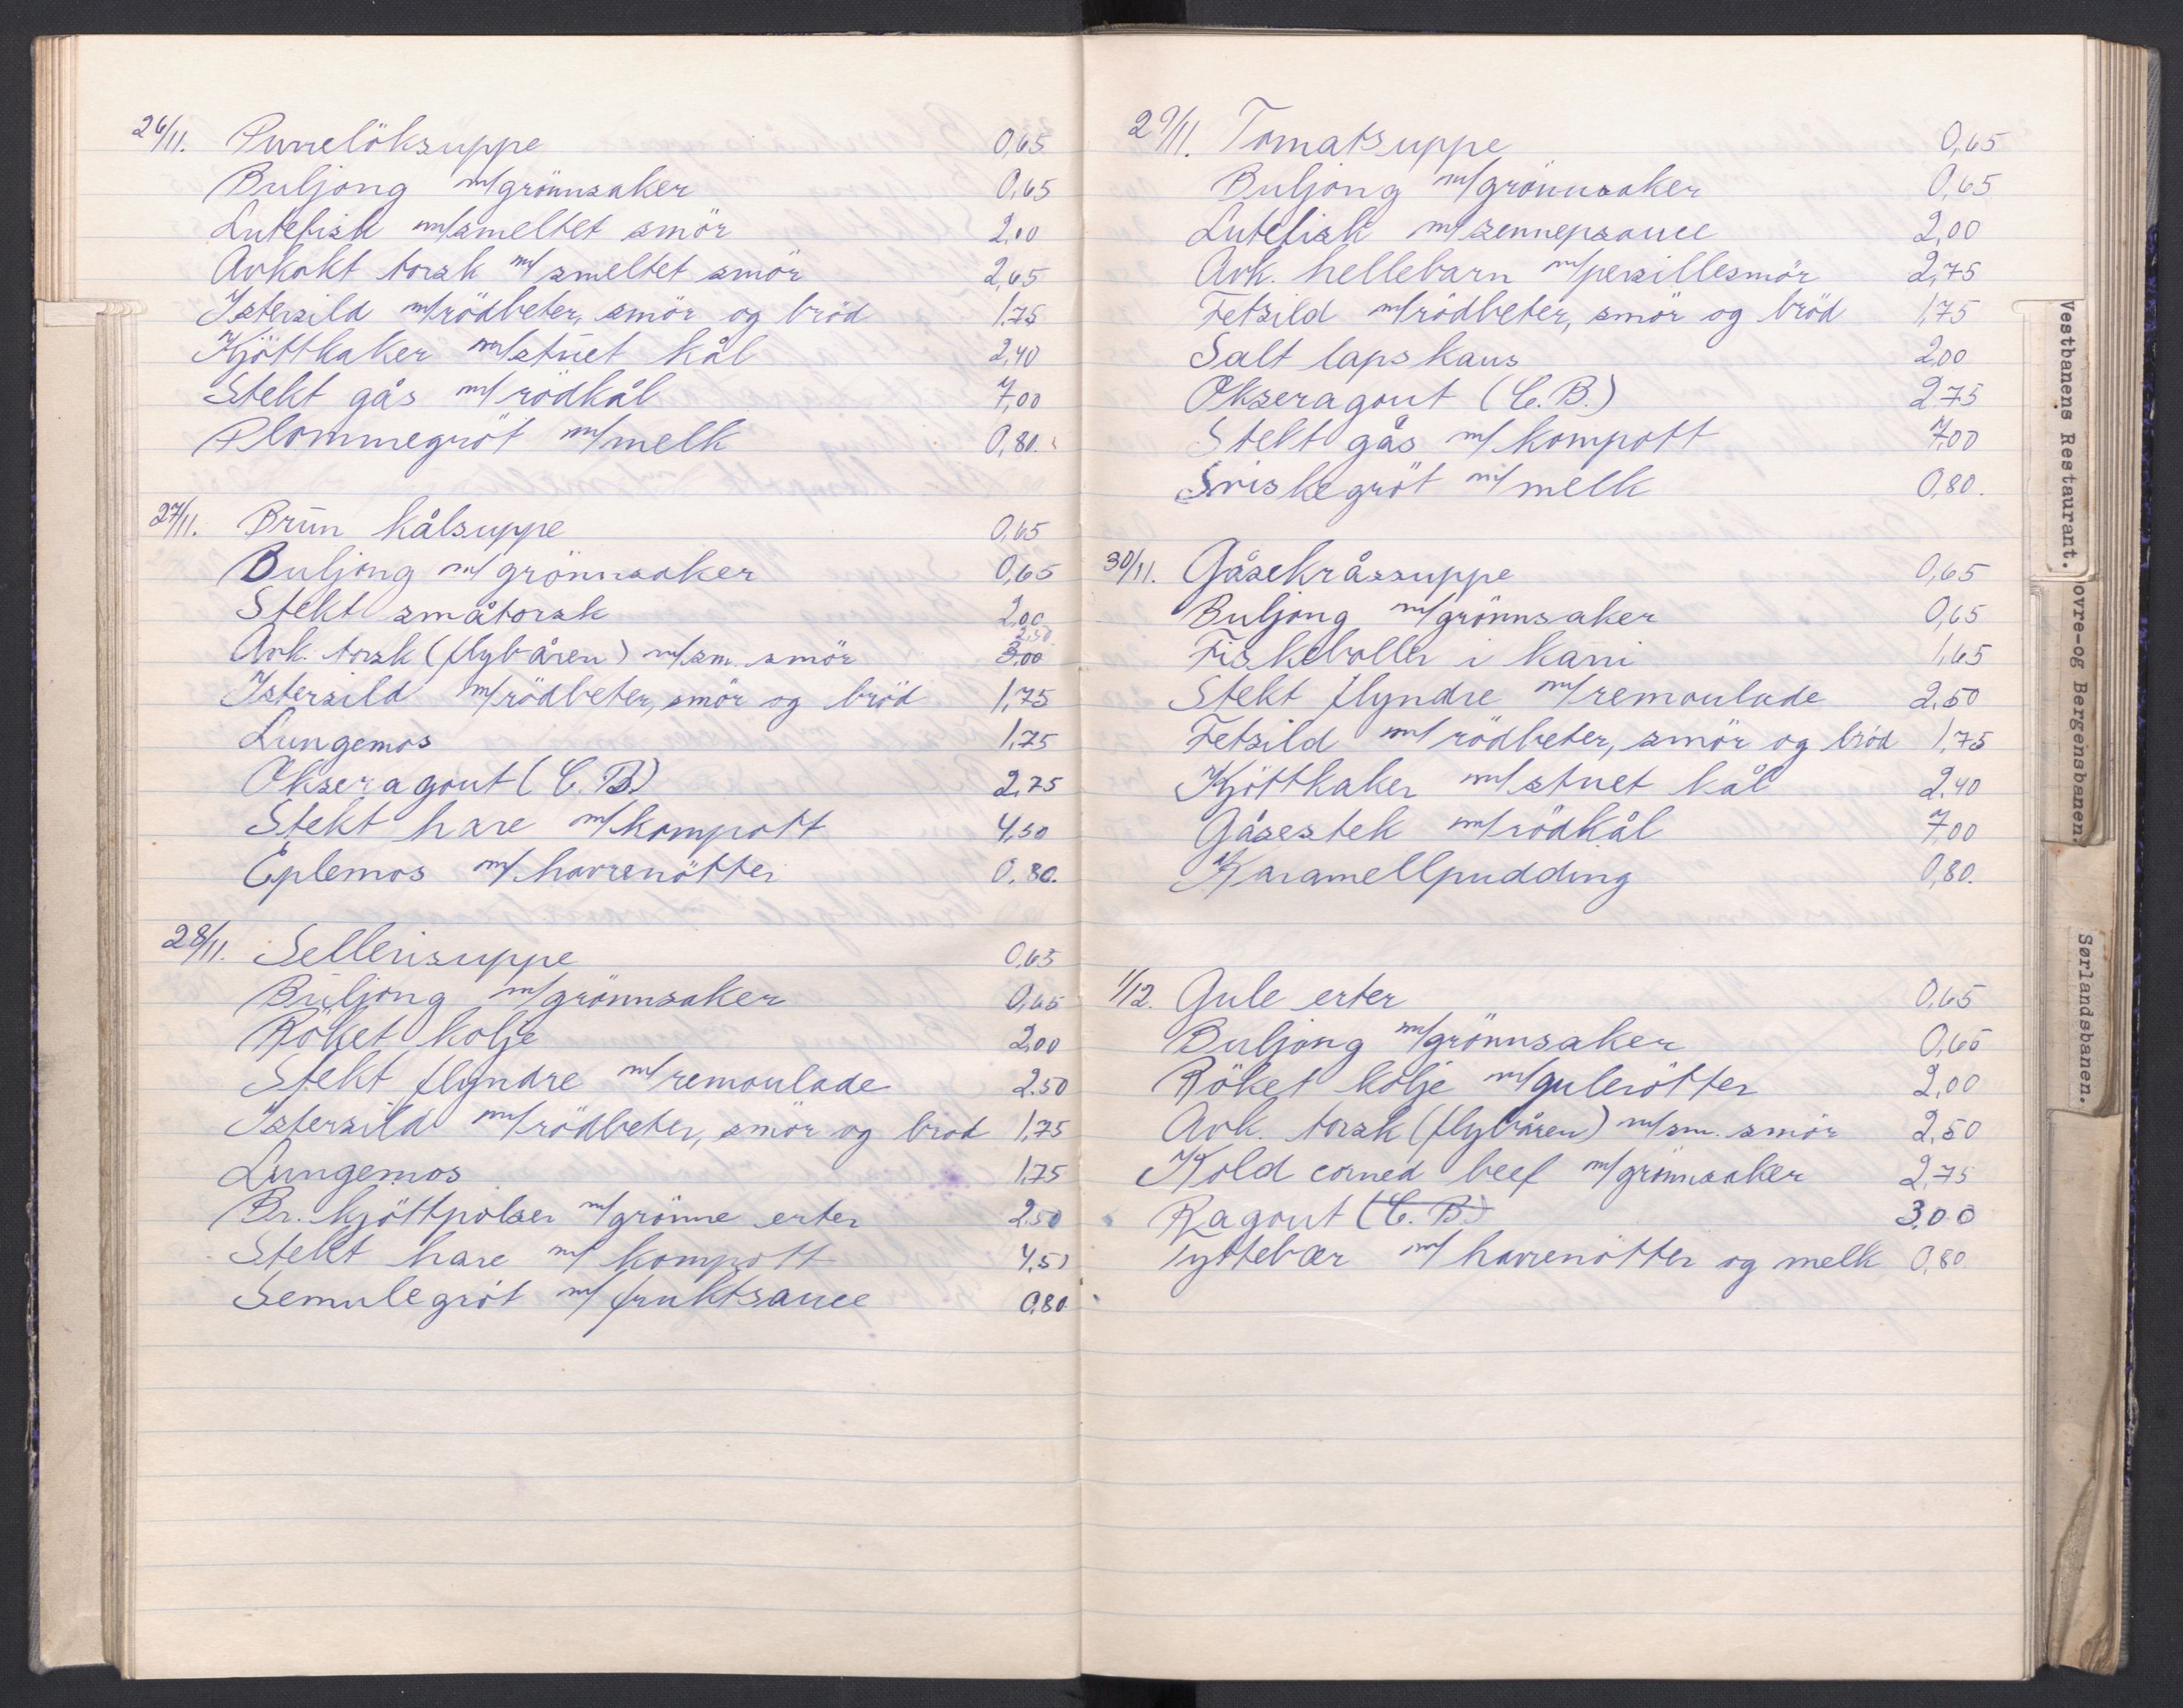 26/11. Purrelöksuppe 0,65
Buljong m/grönnsaker 0,65
Lutefisk m/smeltet smör 2,00
Avkokt torsk m/smeltet smör 2,65
Istersild m/rödbeter, smör og bröd 1.75
Kjöttkaker m/stuet kål 2,40
Stekt gås m/rödkål 7,00
Plommegröt m/melk 0,80.
27/11. Brun kålsuppe 0,65
Buljong m/grönnsaker 0,65
Stekt småtorsk 2,00
2,50
Avk. torsk (flybåren) m/sm. smör 3,00
Istersild m/rödbeter, smör og bröd 1,75
Lungemos 1,75
Okseragout (C.B.) 2,75
Stekt hare m/kompott 4,50
Eplemos m/havrenötter 0,80.
28/11. Sellerisuppe 0,65
Buljong m/grönnsaker 0,65
Röket kolje 2,00
Stekt flyndre m/remoulade 2.50
Istersild m/rödbeter, smör og bröd 1,75
Lungemos 1,75
Br. kjöttpölser m/grönne erter 2,50
Stekt hare m/kompott 4,50
Semulegröt m/fruktsauce 0,80
29/11. Tomatsuppe 0,65
Buljong m/grönnsaker 0,65
Lutefisk m/sennepsauce 2,00
Avk. hellebarn m/persillesmör 2,75
Fetsild m/rödbeter, smör og bröd 1,75
Salt lapskaus 2,00
Okseragout (C.B.) 2,75
Stekt gås m/kompott 7,00
Sviskegröt m/melk 0,80.
30/11. Gåsekråssuppe 0,65
Buljong m/grönnsaker 0,65
Fiskeboller i karri 1,65
Stekt flyndre m/remoulade 2,50
Fetsild m/rödbeter, smör og bröd 1,75
Kjöttkaker m/stuet kål 2,40
Gåsestek m/rödkål 7,00
Karamellpudding 0,80.
1/12. Gule erter 0,65
Buljong m/grönnsaker 0,65
Röket kolje m/gulerötter 2,00
Avk. torsk (flybåren) m/sm. smör 2,50
Kold corned beef m/grönnsaker 2,75
Ragout (C.B.) 3,00
Tyttebær m/havrenötter og melk 0,80
Vestbanens Restaurant.
ovre-og Bergensbanen.
Sørlandsbanen.